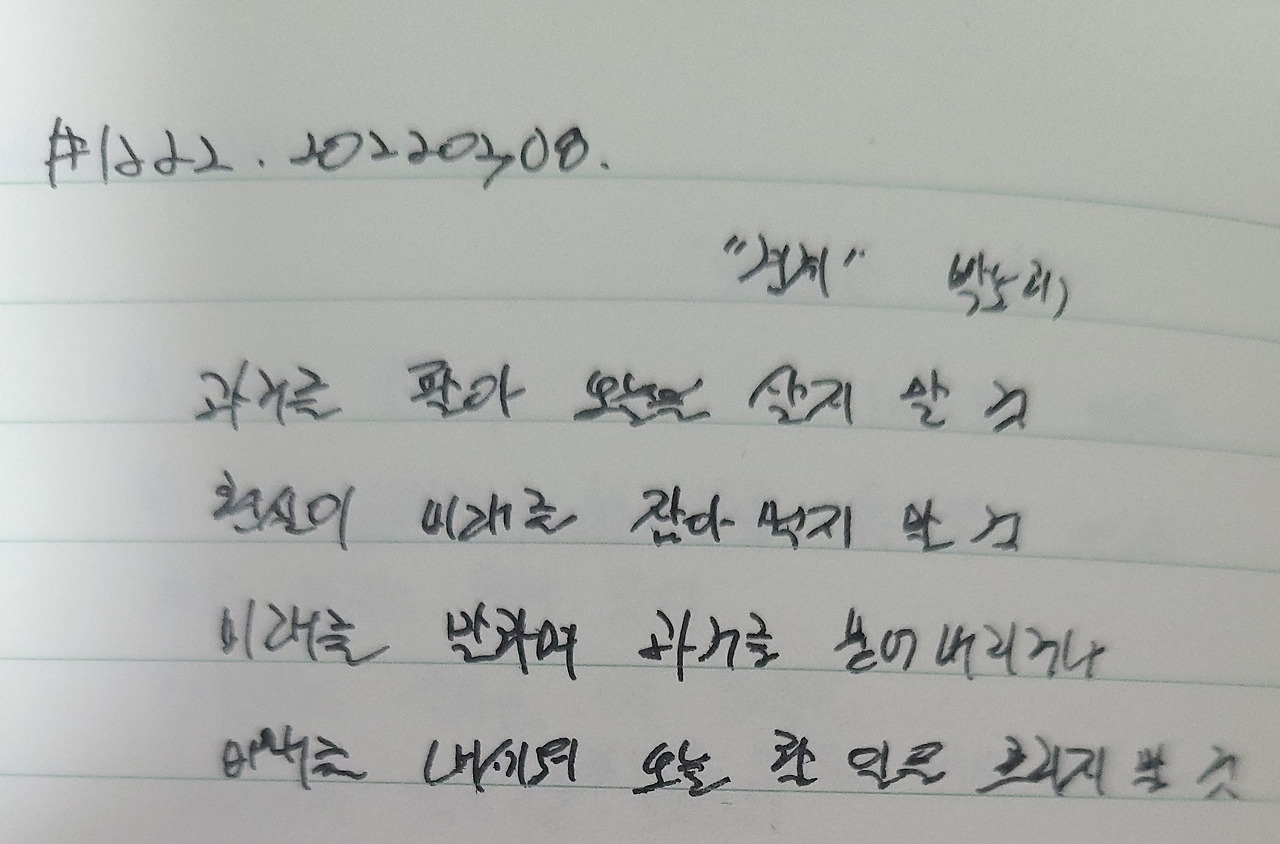 #1222. 20220308.
"경계" 박노해
과거를 팔아 오늘을 살지 말 것
현실이 미래를 잡아 먹지 말 것
미래를 말하며 과거를 묻어버리거나
미래를 내세워 오늘 할 일을 흐리지 말 것